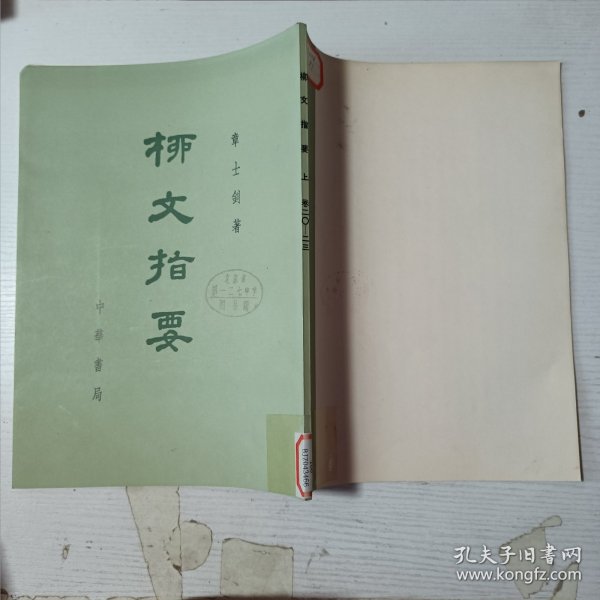 柳文指要
章士釗著
中華書局
柳文指要 上 卷二〇—二三
孔夫子旧书网
www.kongfz.com